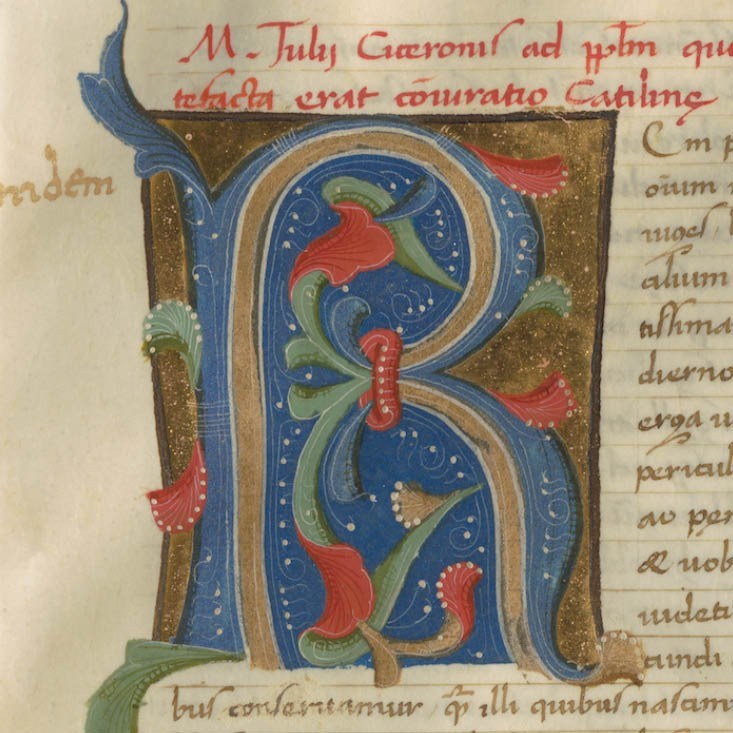 M. Tulij Ciceronis ad pp̄lm que
tefacta erat cōiuratio Catilinę
ndem
R
Em p
oium
iuges
alium
tissima
dierno
erga u
pericul
ac per
& uob
uideti
cundi
bus conseruamur ꝙ̄ illi quibus nascim